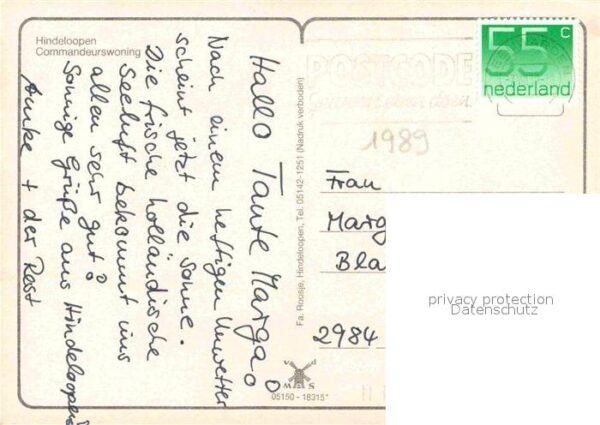 Hindeloopen
Commandeurswoning
Hallo Tante Marga!
Nach einem heftigen Unwetter
scheint jetzt die Sonne.
Die frische holländische
Seeluft bekommt uns
allen sehr gut!
Sonnige Grüße aus Hindeloopen
Anke + der Rest
Fa. Roosje, Hindeloopen, Tel. 05142-1251 (Nadruk verboden)
v d
M S
05150 - 18315*
POSTCODE
55 c
nederland
1989
Frau
Marg
Bla
2984
privacy protection
Datenschutz